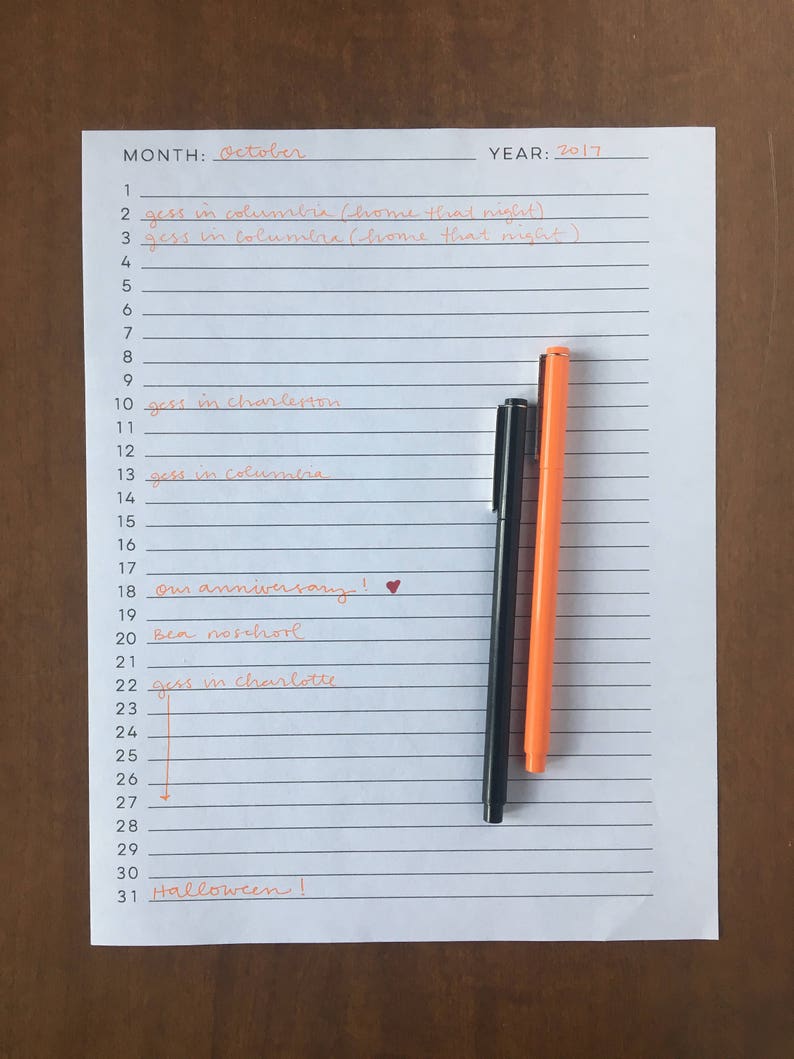 MONTH: October YEAR: 2017
1
2 gess in columbia (home that night)
3 gess in columbia (home that night)
4
5
6
7
8
9
10 gess in charleston
11
12
13 gess in columbia
14
15
16
17
18 our anniversary! ♥
19
20 Bea no school
21
22 gess in charlotte
23
24
25
26
27
28
29
30
31 Halloween!